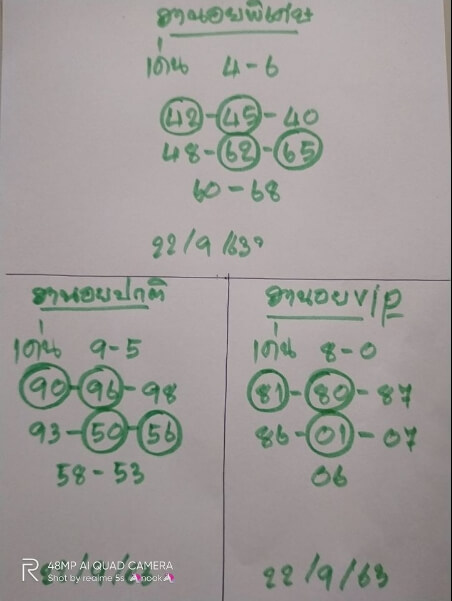 ฮานอยพิเศษ
เด่น 4-6
42-45-40
48-62-65
60-68
22/9/63
ฮานอยปกติ
เด่น 9-5
90-96-98
93-50-56
58-53
ฮานอย vip
เด่น 8-0
81-80-87
86-01-07
06
22/9/63
48MP AI QUAD CAMERA
Shot by realme 5s nook